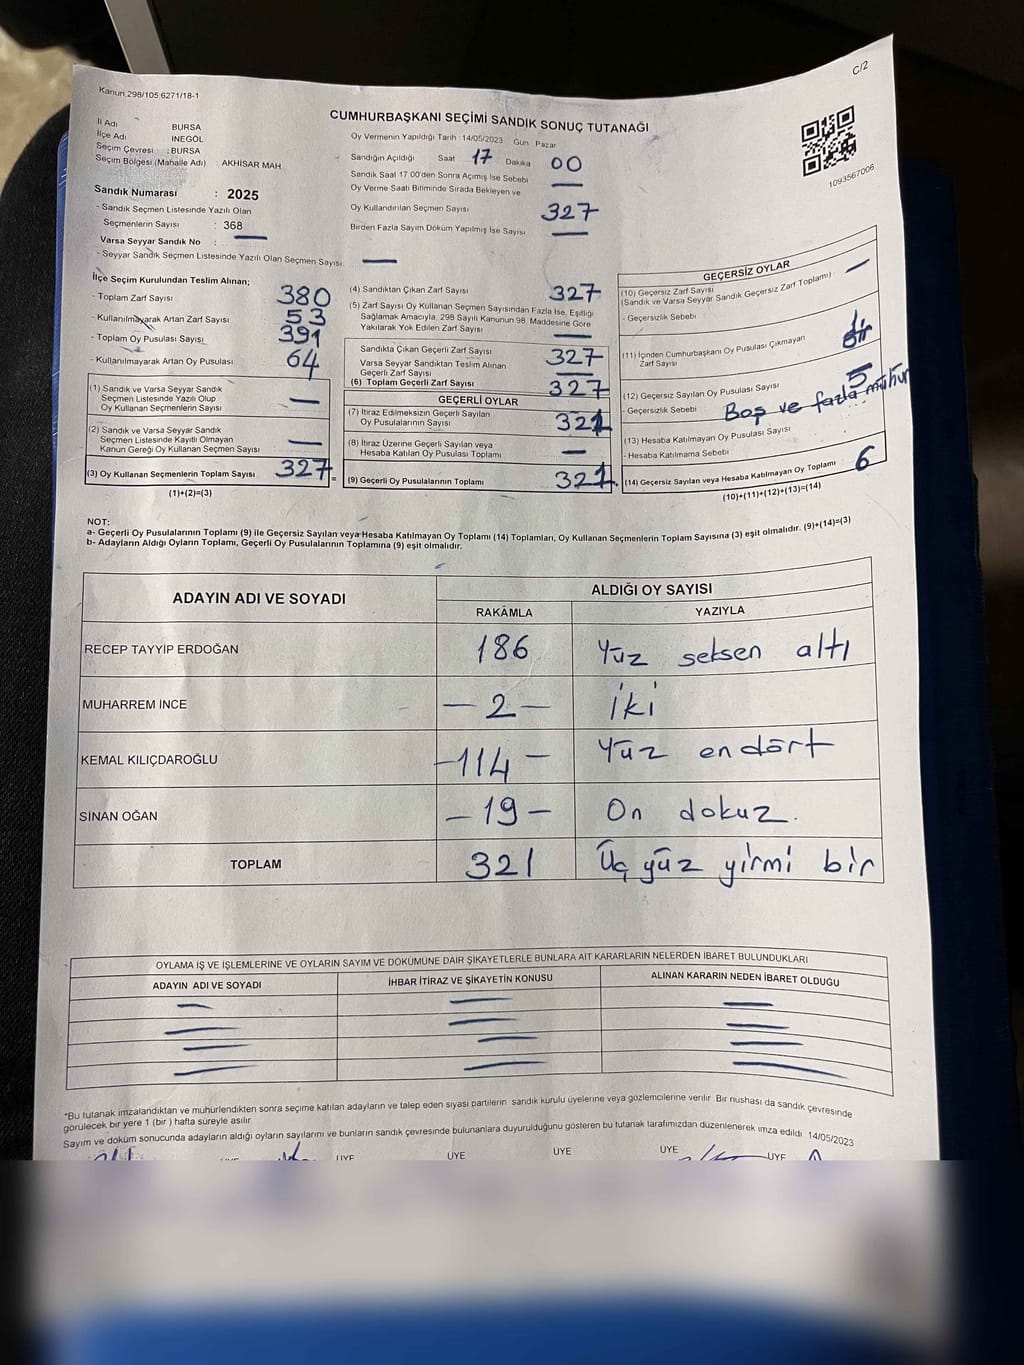 C/2
Kanun 298/105 6271/18-1
CUMHURBAŞKANI SEÇİMİ SANDIK SONUÇ TUTANAĞI
1093567006
İl Adı BURSA
İlçe Adı INEGÖL
Seçim Çevresi : BURSA
Seçim Bölgesi (Mahalle Adı) : AKHISAR MAH.
Sandık Numarası : 2025
- Sandık Seçmen Listesinde Yazılı Olan
Seçmenlerin Sayısı : 368
Varsa Seyyar Sandık No : —
- Seyyar Sandık Seçmen Listesinde Yazılı Olan Seçmen Sayısı —
Oy Vermenin Yapıldığı Tarih : 14/05/2023 Gün Pazar
Sandığın Açıldığı Saat 17 Dakika 00
Sandık Saat 17.00'den Sonra Açımış İse Sebebi —
Oy Verme Saati Bitiminde Sırada Bekleyen ve
Oy Kullandırılan Seçmen Sayısı 327
Birden Fazla Sayım Döküm Yapılmış İse Sayısı —
İlçe Seçim Kurulundan Teslim Alınan;
- Toplam Zarf Sayısı 380
- Kullanılmayarak Artan Zarf Sayısı 53
- Toplam Oy Pusulası Sayısı 391
- Kullanılmayarak Artan Oy Pusulası 64
(1) Sandık ve Varsa Seyyar Sandık
Seçmen Listesinde Yazılı Olup
Oy Kullanan Seçmenlerin Sayısı —
(2) Sandık ve Varsa Seyyar Sandık
Seçmen Listesinde Kayıtlı Olmayan
Kanun Gereği Oy Kullanan Seçmen Sayısı —
(3) Oy Kullanan Seçmenlerin Toplam Sayısı 327
(1)+(2)=(3)
(4) Sandıktan Çıkan Zarf Sayısı 327
(5) Zarf Sayısı Oy Kullanan Seçmen Sayısından Fazla İse, Eşitliği
Sağlamak Amacıyla, 298 Sayılı Kanunun 98. Maddesine Göre
Yakılarak Yok Edilen Zarf Sayısı —
Sandıkta Çıkan Geçerli Zarf Sayısı 327
Varsa Seyyar Sandıktan Teslim Alınan
Geçerli Zarf Sayısı —
(6) Toplam Geçerli Zarf Sayısı 327
GEÇERLİ OYLAR
(7) İtiraz Edilmeksizin Geçerli Sayılan
Oy Pusulalarının Sayısı 321
(8) İtiraz Üzerine Geçerli Sayılan veya
Hesaba Katılan Oy Pusulası Toplamı —
(9) Geçerli Oy Pusulalarının Toplamı 321
GEÇERSİZ OYLAR
(10) Geçersiz Zarf Sayısı —
(Sandık ve Varsa Seyyar Sandık Geçersiz Zarf Toplamı)
- Geçersizlik Sebebi
(11) İçinden Cumhurbaşkanı Oy Pusulası Çıkmayan
Zarf Sayısı bir
(12) Geçersiz Sayılan Oy Pusulası Sayısı 5
- Geçersizlik Sebebi Boş ve fazla mühür
(13) Hesaba Katılmayan Oy Pusulası Sayısı
- Hesaba Katılmama Sebebi
(14) Geçersiz Sayılan veya Hesaba Katılmayan Oy Toplamı 6
(10)+(11)+(12)+(13)=(14)
NOT:
a- Geçerli Oy Pusulalarının Toplamı (9) ile Geçersiz Sayılan veya Hesaba Katılmayan Oy Toplamı (14) Toplamları, Oy Kullanan Seçmenlerin Toplam Sayısına (3) eşit olmalıdır. (9)+(14)=(3)
b- Adayların Aldığı Oyların Toplamı, Geçerli Oy Pusulalarının Toplamına (9) eşit olmalıdır.
ADAYIN ADI VE SOYADI ALDIĞI OY SAYISI
RAKAMLA YAZIYLA
RECEP TAYYİP ERDOĞAN 186 Yüz seksen altı
MUHARREM İNCE — 2 — İki
KEMAL KILIÇDAROĞLU — 114 — Yüz endört
SİNAN OĞAN — 19 — On dokuz.
TOPLAM 321 Üç yüz yirmi bir
OYLAMA İŞ VE İŞLEMLERİNE VE OYLARIN SAYIM VE DÖKÜMÜNE DAİR ŞİKAYETLERLE BUNLARA AİT KARARLARIN NELERDEN İBARET BULUNDUKLARI
ADAYIN ADI VE SOYADI İHBAR İTİRAZ VE ŞİKAYETİN KONUSU ALINAN KARARIN NEDEN İBARET OLDUĞU
— — —
— — —
— — —
— — —
"Bu tutanak imzalandıktan ve mühürlendikten sonra seçime katılan adayların ve talep eden siyasi partilerin sandık kurulu üyelerine veya gözlemcilerine verilir. Bir nushası da sandık çevresinde
görülecek bir yere 1 (bir) hafta süreyle asılır.
Sayım ve döküm sonucunda adayların aldığı oyların sayılarını ve bunların sandık çevresinde bulunanlara duyurulduğunu gösteren bu tutanak tarafımızdan düzenlenerek imza edildi 14/05/2023
ÜYE ÜYE ÜYE ÜYE ÜYE